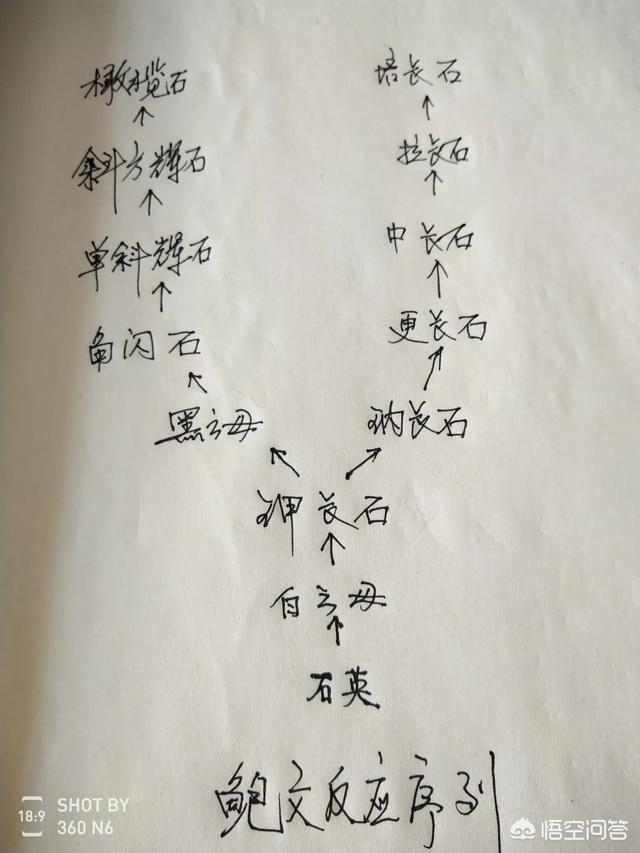 橄榄石 培长石
斜方辉石 拉长石
单斜辉石 中长石
角闪石 更长石
黑云母 钠长石
钾长石
白云母
石英
鲍文反应序列
18:9 SHOT BY
360 N6
悟空问答